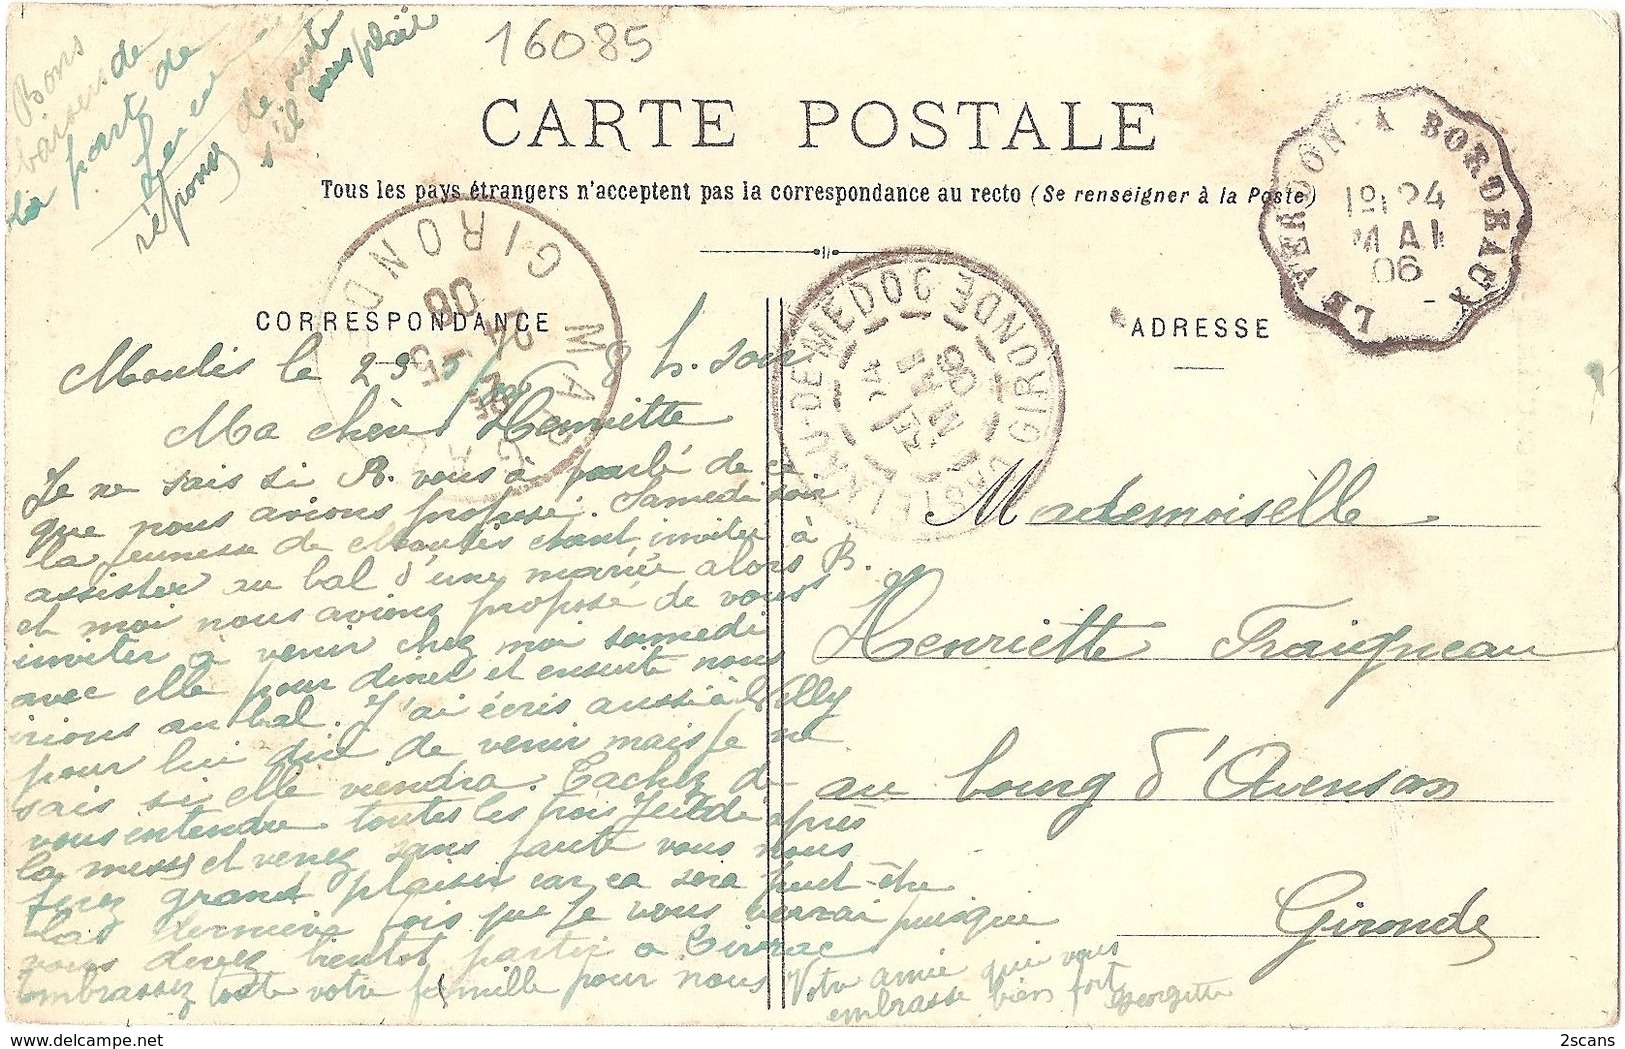 16085
Bons
baisers de
la part de
réponse de suite
s'il vous plaît
CARTE POSTALE
Tous les pays étrangers n'acceptent pas la correspondance au recto (Se renseigner à la Poste)
LE VERDON À BORDEAUX
24
MAI
06
GIRONDE
CASTELNAU-DE-MEDOC GIRONDE
CORRESPONDANCE
ADRESSE
Moulis le 23 5 8 h. soir
Ma chère Henriette
Je ne sais si R. vous à parlé de ce
que nous avions proposé. Samedi soir
la jeunesse de Moulis étant inviter à
assister au bal d'une mariée alors R.
et moi nous avions proposé de vous
inviter à venir chez moi samedi
avec elle pour diner et ensuite nous
irions au bal. J'ai écris aussi à Nelly
pour lui dire de venir mais je ne
sais si elle viendra. Tachez de
vous entendre toutes les trois Jeudi après
la messe et venez sans faute vous nous
ferez grand plaisir car ça sera peut-être
las dernière fois que je vous verrai puisque
vous devez bientot partir à Civrac
Embrassez toute votre famille pour nous
Votre amie qui vous
embrasse bien fort
Georgette
Mademoiselle
Henriette Fraigneau
au bourg d'Avensan
Gironde
2scans
delcampe.net